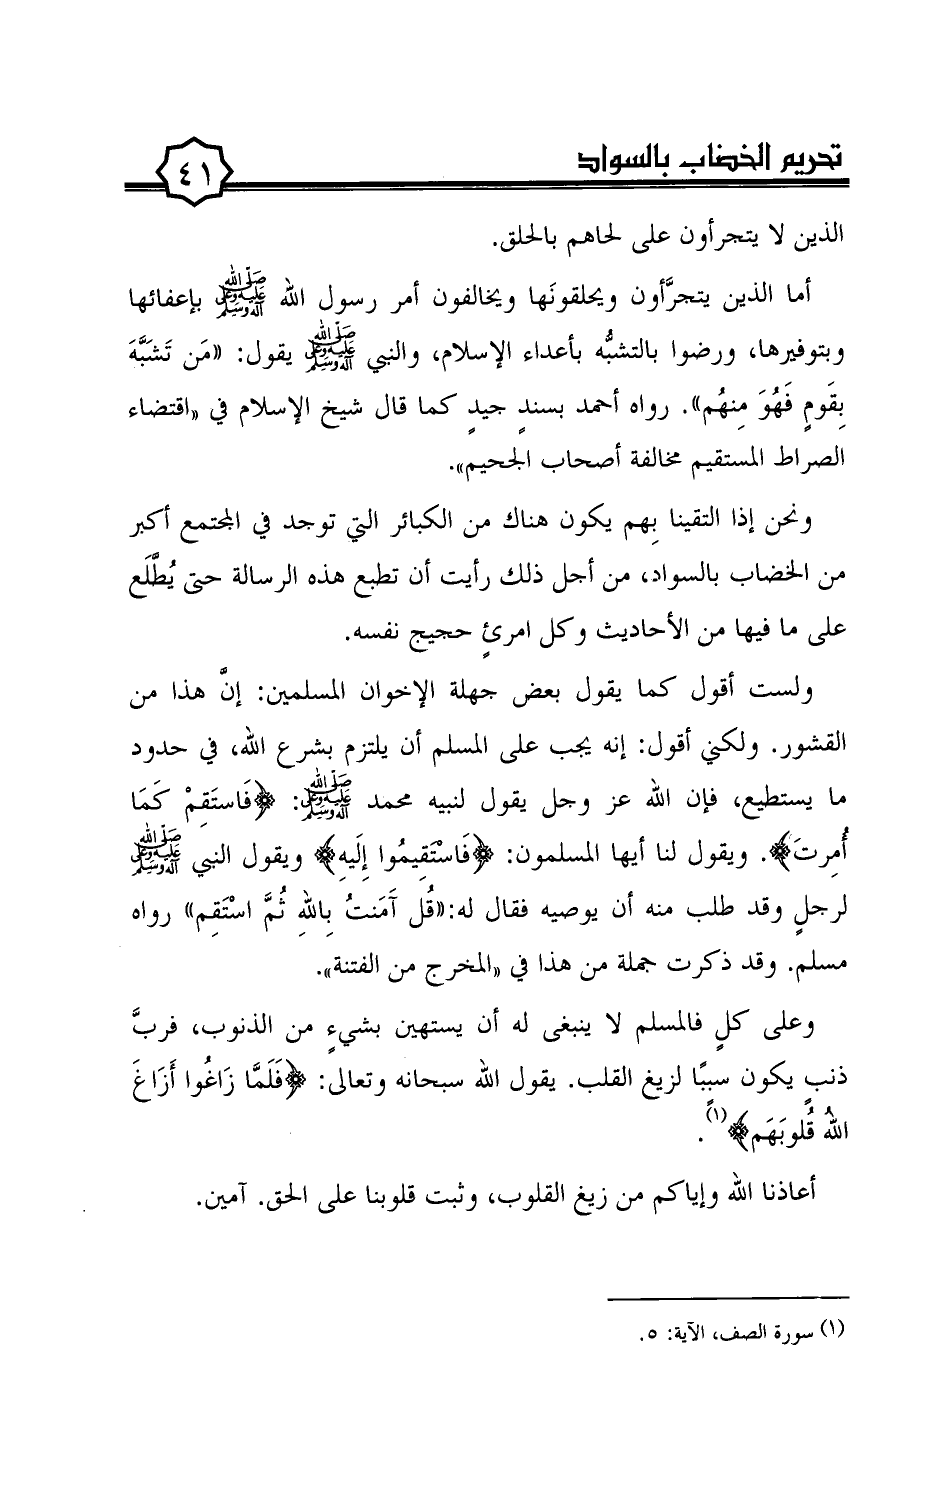 تحريم الخضاب بالسواد
٤١
الذين لا يتجرأون على لحاهم بالحلق.
أما الذين يتجرَّأون ويحلقونَها ويخالفون أمر رسول الله ﷺ بإعفائها
وبتوفيرها، ورضوا بالتشبُّه بأعداء الإسلام، والنبي ﷺ يقول: «مَن تَشَبَّهَ
بِقَومٍ فَهُوَ مِنهُم». رواه أحمد بسندٍ جيدٍ كما قال شيخ الإسلام في «اقتضاء
الصراط المستقيم مخالفة أصحاب الجحيم».
ونحن إذا التقينا بِهم يكون هناك من الكبائر التي توجد في المجتمع أكبر
من الخضاب بالسواد، من أجل ذلك رأيت أن تطبع هذه الرسالة حتى يُطَّلَع
على ما فيها من الأحاديث وكل امرئٍ حجيج نفسه.
ولست أقول كما يقول بعض جهلة الإخوان المسلمين: إنَّ هذا من
القشور. ولكني أقول: إنه يجب على المسلم أن يلتزم بشرع الله، في حدود
ما يستطيع، فإن الله عز وجل يقول لنبيه محمد ﷺ: ﴿فَاستَقِمْ كَمَا
أُمِرتَ﴾. ويقول لنا أيها المسلمون: ﴿فَاسْتَقِيمُوا إِلَيهِ﴾ ويقول النبي ﷺ
لرجلٍ وقد طلب منه أن يوصيه فقال له:«قُل آمَنتُ بِاللهِ ثُمَّ اسْتَقِم» رواه
مسلم. وقد ذكرت جملة من هذا في «المخرج من الفتنة».
وعلى كلٍ فالمسلم لا ينبغى له أن يستهين بشيءٍ من الذنوب، فربَّ
ذنبٍ يكون سببًا لزيغ القلب. يقول الله سبحانه وتعالى: ﴿فَلَمَّا زَاغُوا أَزَاغَ
اللهُ قُلُوبَهَم﴾(١).
أعاذنا الله وإياكم من زيغ القلوب، وثبت قلوبنا على الحق. آمين.
(١) سورة الصف، الآية: ٥.